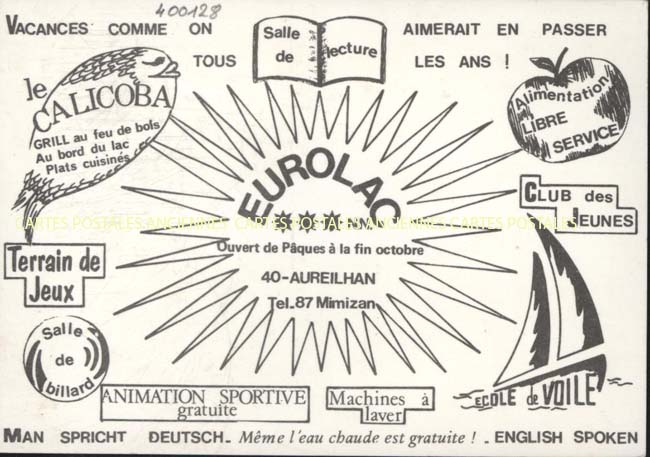 400128
VACANCES COMME ON AIMERAIT EN PASSER
TOUS LES ANS !
Salle de lecture
le
CALICOBA
GRILL au feu de bois
Au bord du lac
Plats cuisinés
Alimentation
LIBRE
SERVICE
EUROLAC
CARTES POSTALES ANCIENNES CARTES POSTALES ANCIENNES CARTES POSTALES ANCIENNES
CLUB des
JEUNES
Ouvert de Pâques à la fin octobre
40-AUREILHAN
Tel.87 Mimizan
Terrain de
Jeux
Salle
de
billard
ECOLE de VOILE
ANIMATION SPORTIVE
gratuite
Machines à
laver
MAN SPRICHT DEUTSCH_ Même l'eau chaude est gratuite ! _ ENGLISH SPOKEN